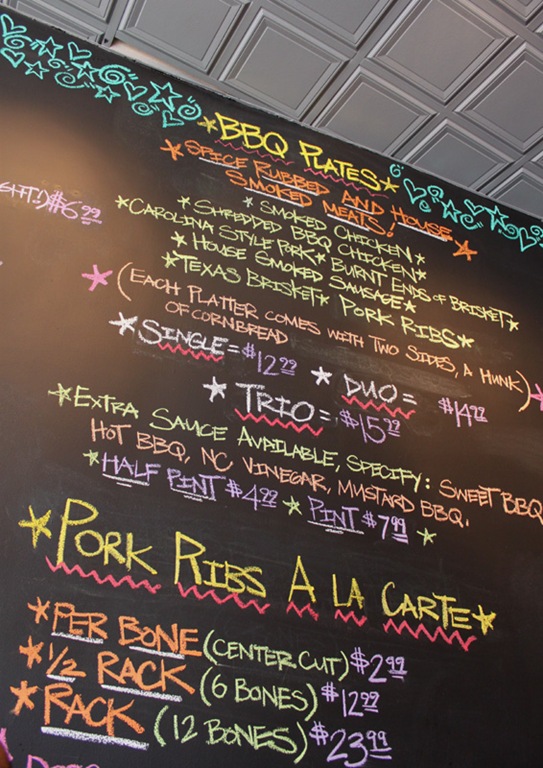 BBQ PLATES
SPICE RUBBED AND HOUSE
SMOKED MEATS!
$6.99
SMOKED CHICKEN
SHREDDED BBQ CHICKEN
CAROLINA STYLE PORK BURNT ENDS OF BRISKET
HOUSE SMOKED SAUSAGE
TEXAS BRISKET PORK RIBS
(EACH PLATTER COMES WITH TWO SIDES, A HUNK)
OF CORNBREAD
SINGLE = $12.99 DUO = $14.99
TRIO = $15.99
EXTRA SAUCE AVAILABLE, SPECIFY: SWEET BBQ
HOT BBQ, NC VINEGAR, MUSTARD BBQ.
HALF PINT $4.99 PINT $7.99
PORK RIBS A LA CARTE
PER BONE (CENTER CUT) $2.99
1/2 RACK (6 BONES) $12.99
RACK (12 BONES) $23.99